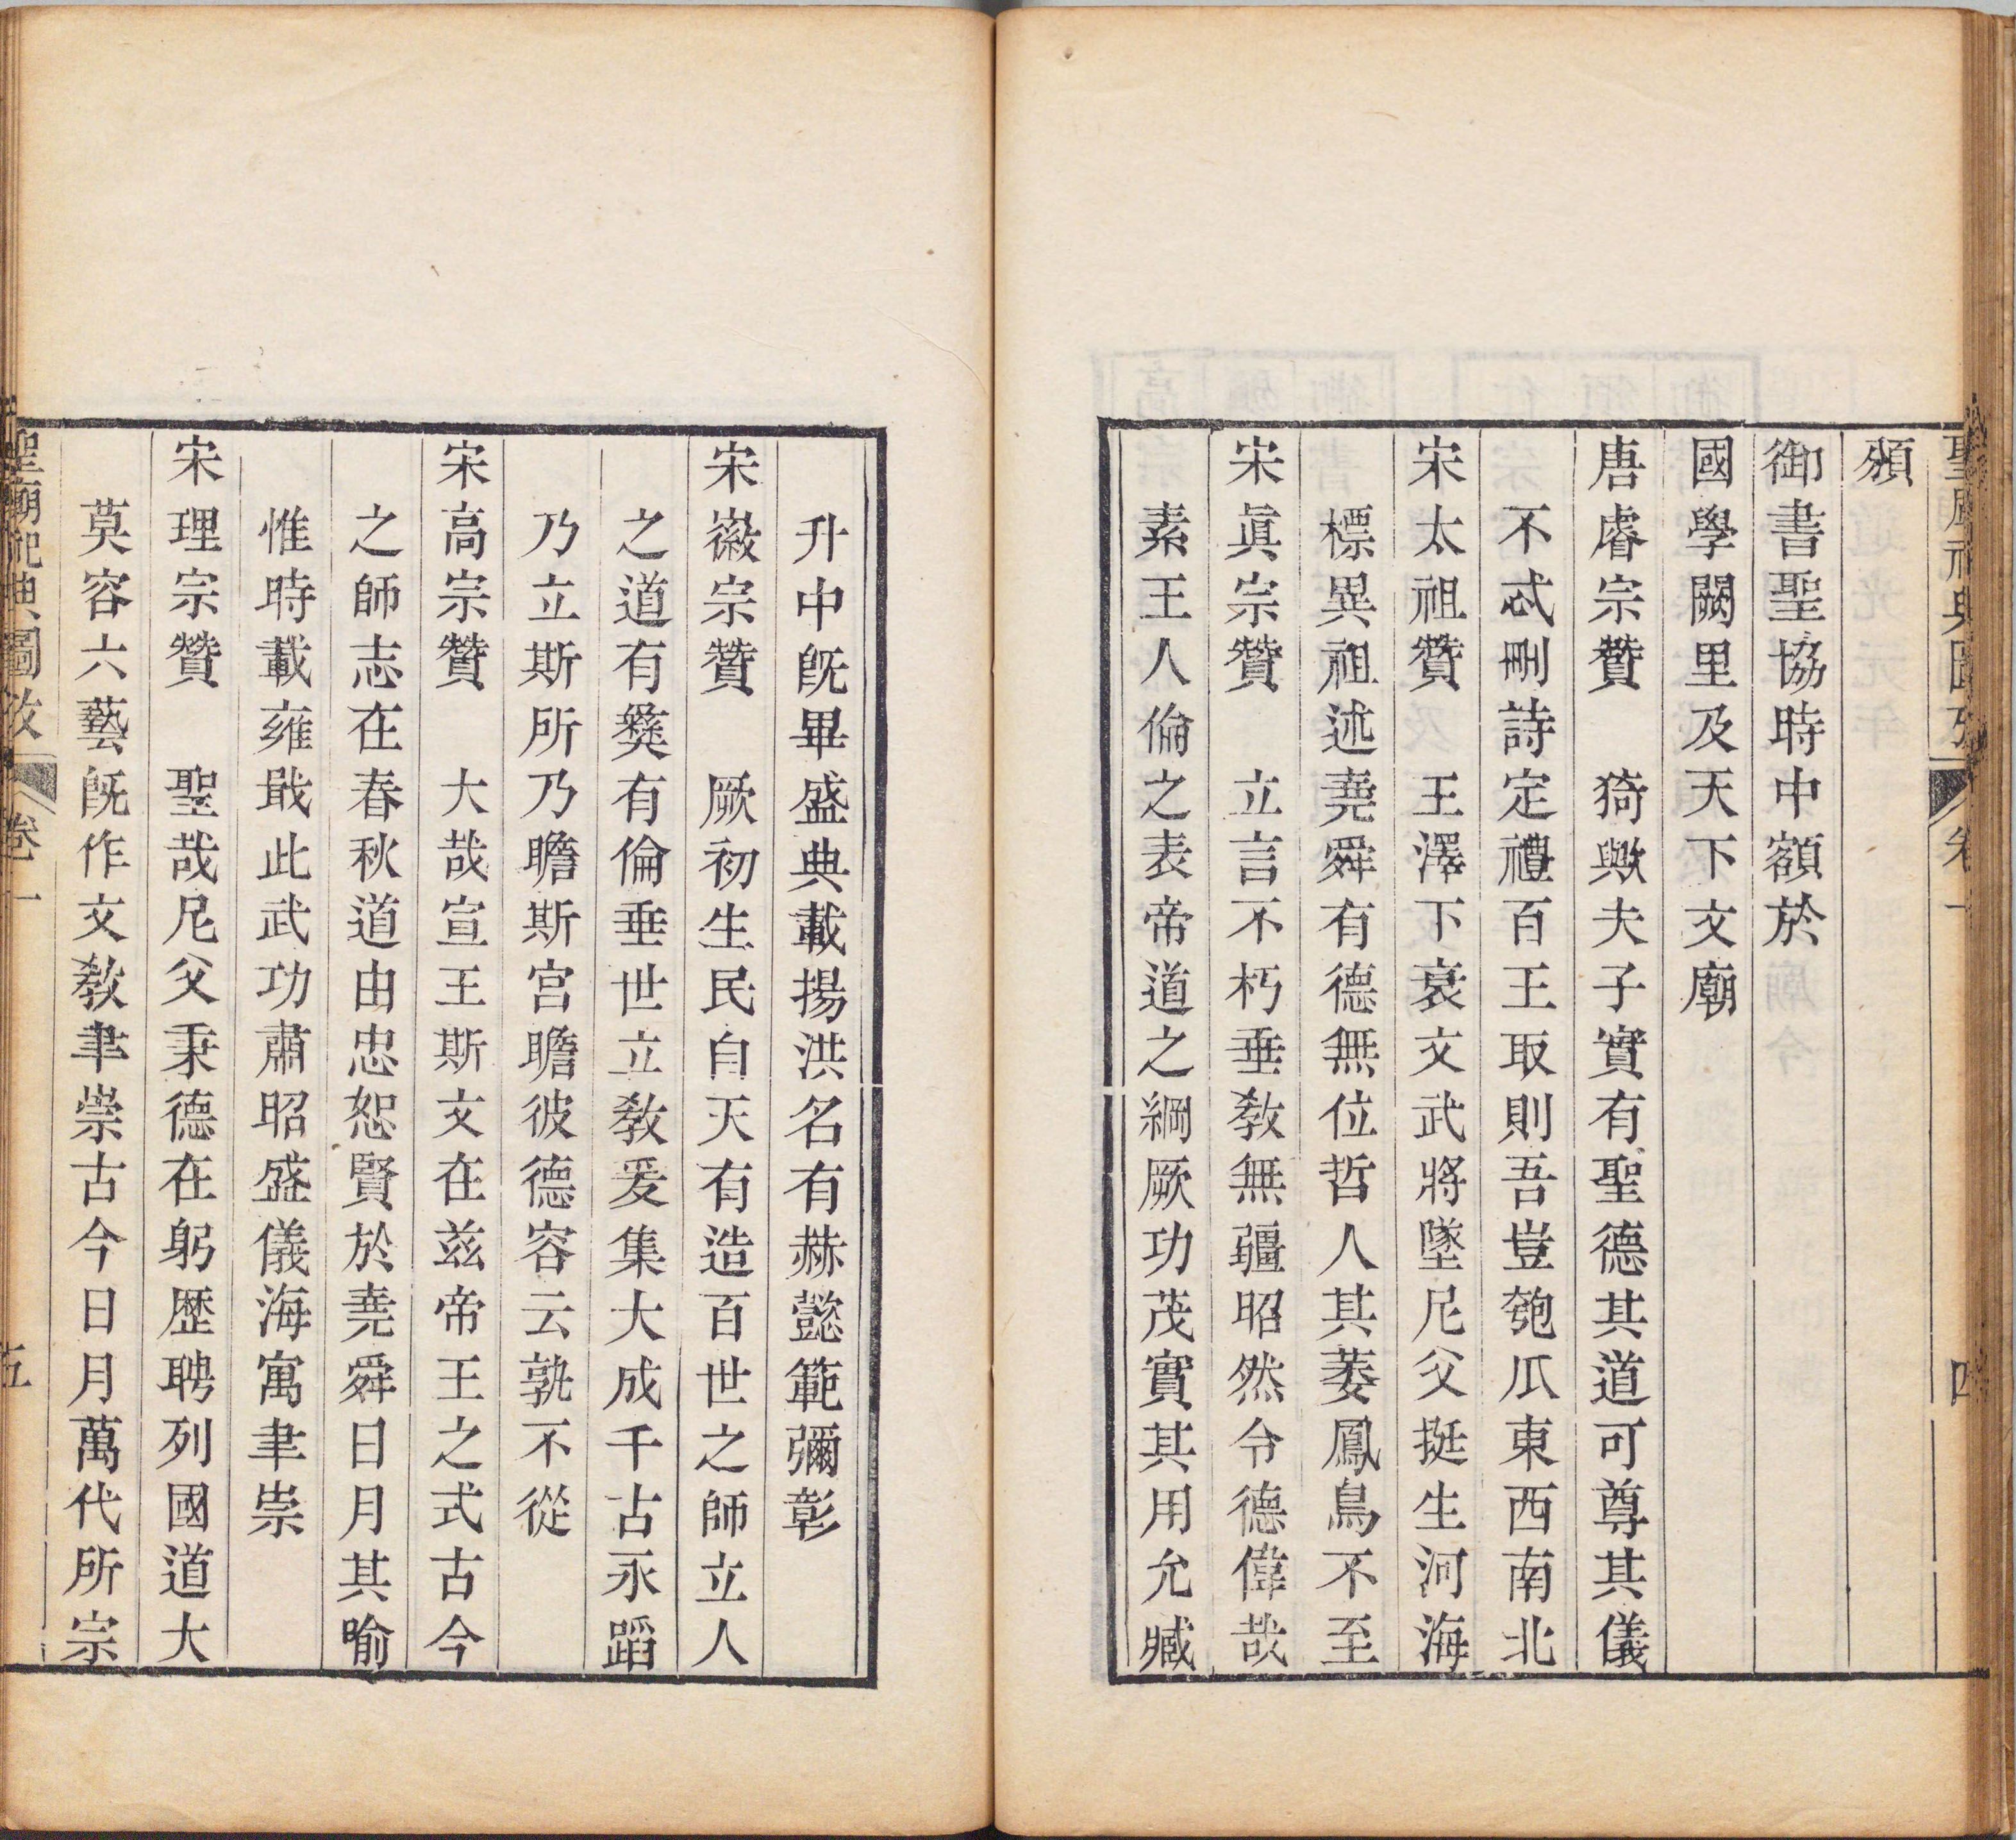 聖廟祀典圖攷 卷一 四
頒
御書聖協時中額於
國學闕里及天下文廟
唐睿宗贊 猗歟夫子實有聖德其道可尊其儀
不忒刪詩定禮百王取則吾豈匏瓜東西南北
宋太祖贊 王澤下衰文武將墜尼父挺生河海
標異祖述堯舜有德無位哲人其萎鳳鳥不至
宋眞宗贊 立言不朽垂敎無疆昭然令德偉哉
素王人倫之表帝道之綱厥功茂實其用允臧
升中旣畢盛典載揚洪名有赫懿範彌彰
宋徽宗贊 厥初生民自天有造百世之師立人
之道有彝有倫垂世立敎爰集大成千古永蹈
乃立斯所乃瞻斯宮瞻彼德容云孰不從
宋高宗贊 大哉宣王斯文在兹帝王之式古今
之師志在春秋道由忠恕賢於堯舜日月其喻
惟時載雍戢此武功肅昭盛儀海寓聿崇
宋理宗贊 聖哉尼父秉德在躬歷聘列國道大
莫容六藝旣作文敎聿崇古今日月萬代所宗
聖廟祀典圖攷 卷一 五